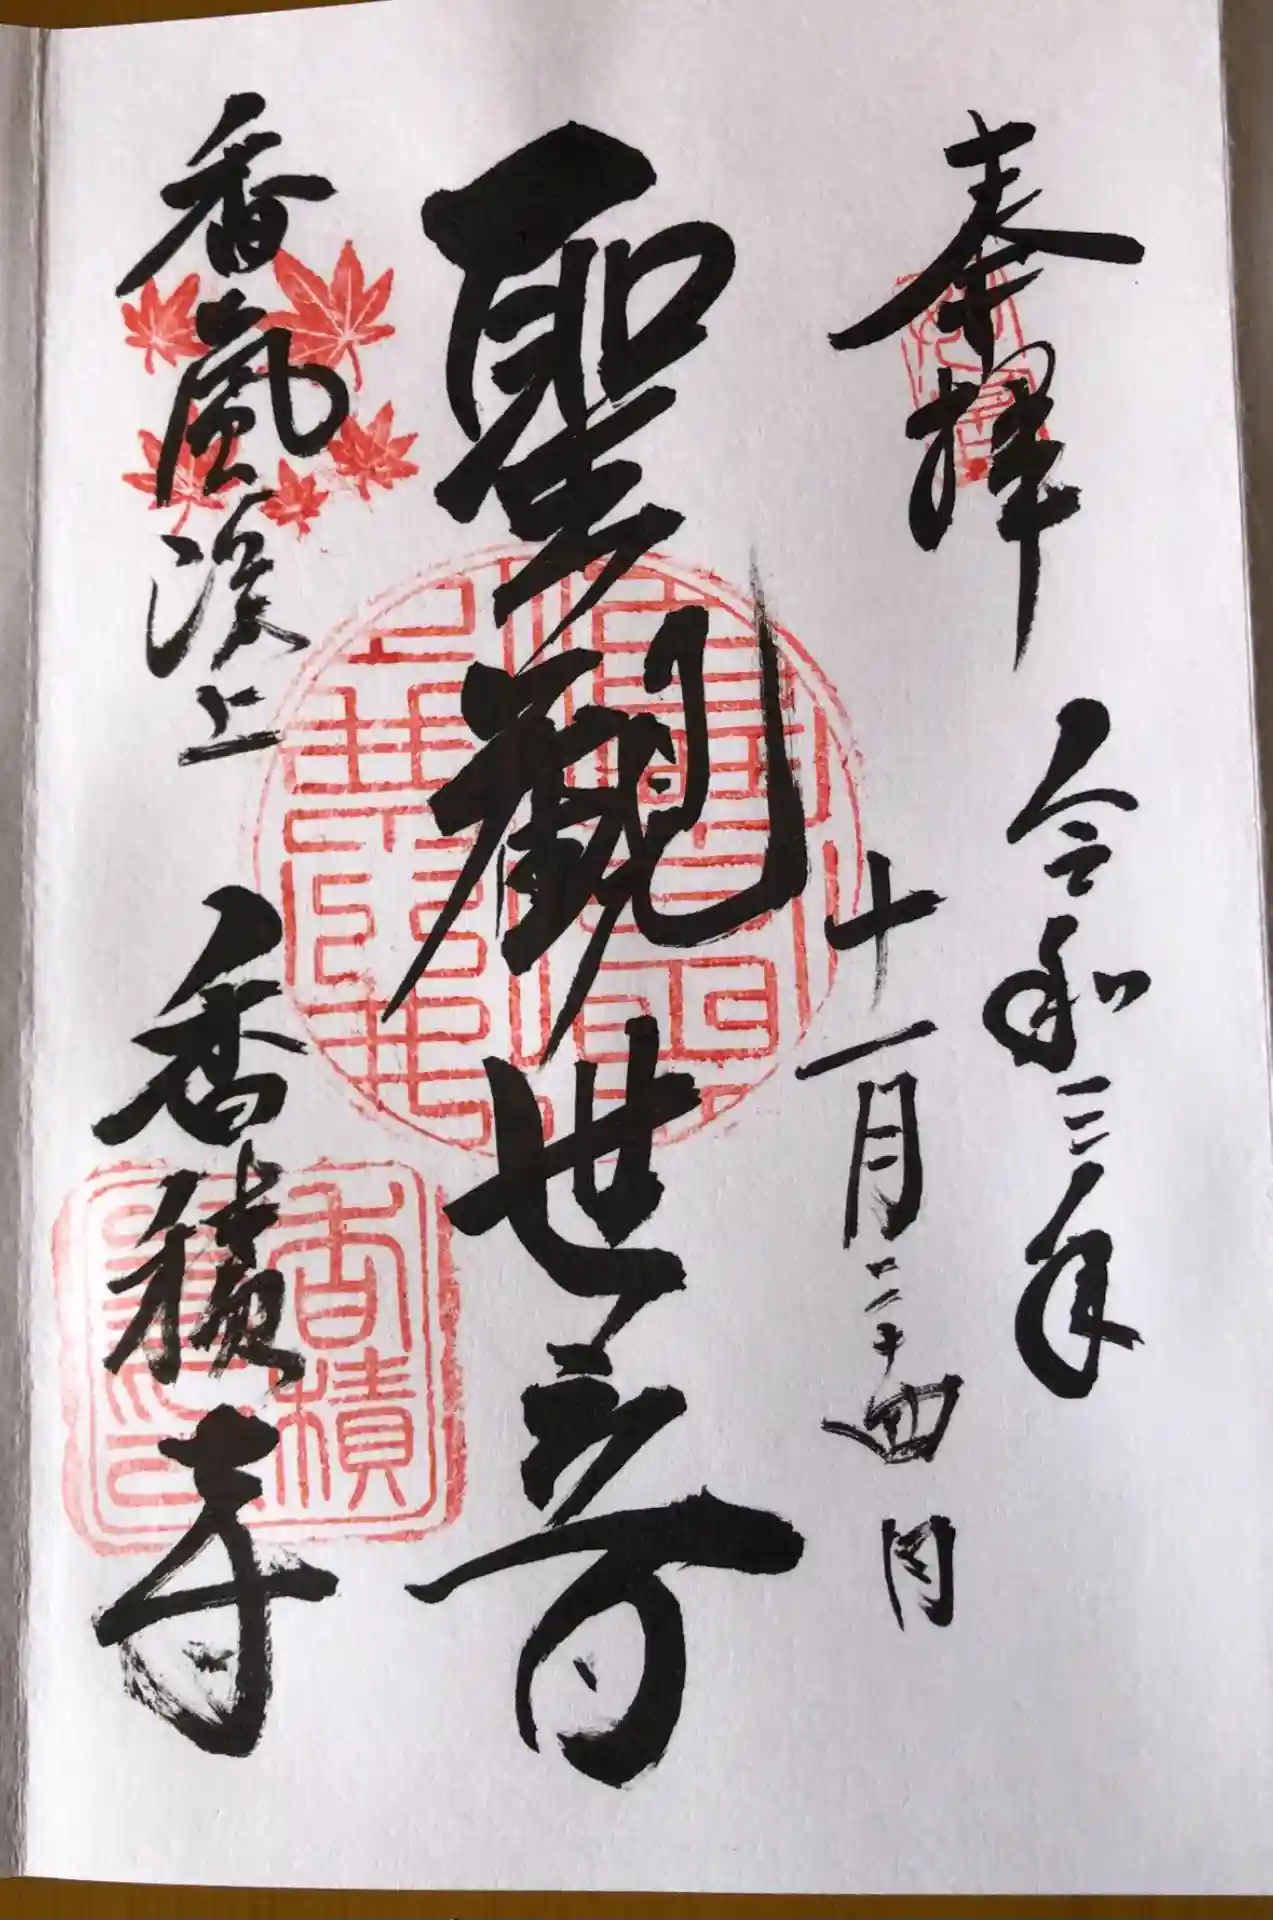 奉拝
令和三年
十一月二十四日
聖観世音
香嵐渓上
香積寺
香積